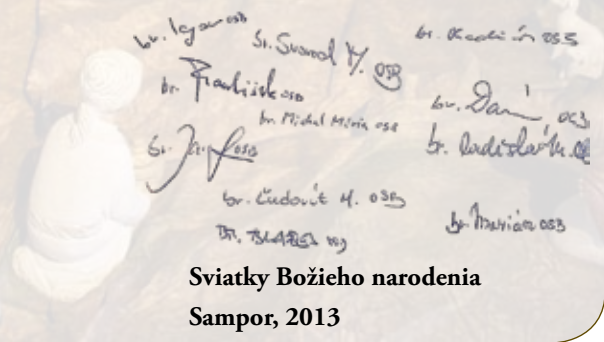 br. Igor OSB
br. Svorad M. OSB
br. František OSB
br. Michal Mária OSB
br. Damián OSB
br. Ján OSB
br. Ladislav M. OSB
br. Ľudovít M. OSB
br. Marián OSB
br. BLAŽEJ OSB
Sviatky Božieho narodenia
Sampor, 2013